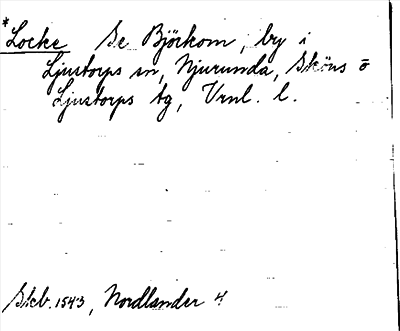 *Locke Se Björkom, by i
Ljustorps sn, Njurunda, Sköns o
Ljustorps tg, Vrnl. l.
Skb. 1543, Nordlander 4